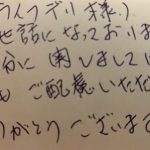 ライフデリ様
世話になっておりま
分に関しまして
ご配慮いただ
りがとうございま